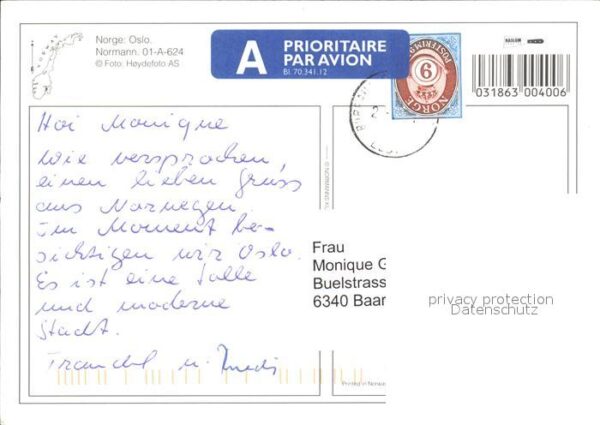 Norge: Oslo.
Normann. 01-A-624
© Foto: Høydefoto AS
A PRIORITAIRE
PAR AVION
Bl. 70.341.12
NORGE
031863 004006
Hoi Monique
Wie versprochen,
einen lieben Gruss
aus Norwegen.
Im Moment be-
sichtigen wir Oslo.
Es ist eine tolle
und moderne
Stadt.
Traudel u.
Frau
Monique G
Buelstrass
6340 Baar
privacy protection
Datenschutz
Printed in Norway